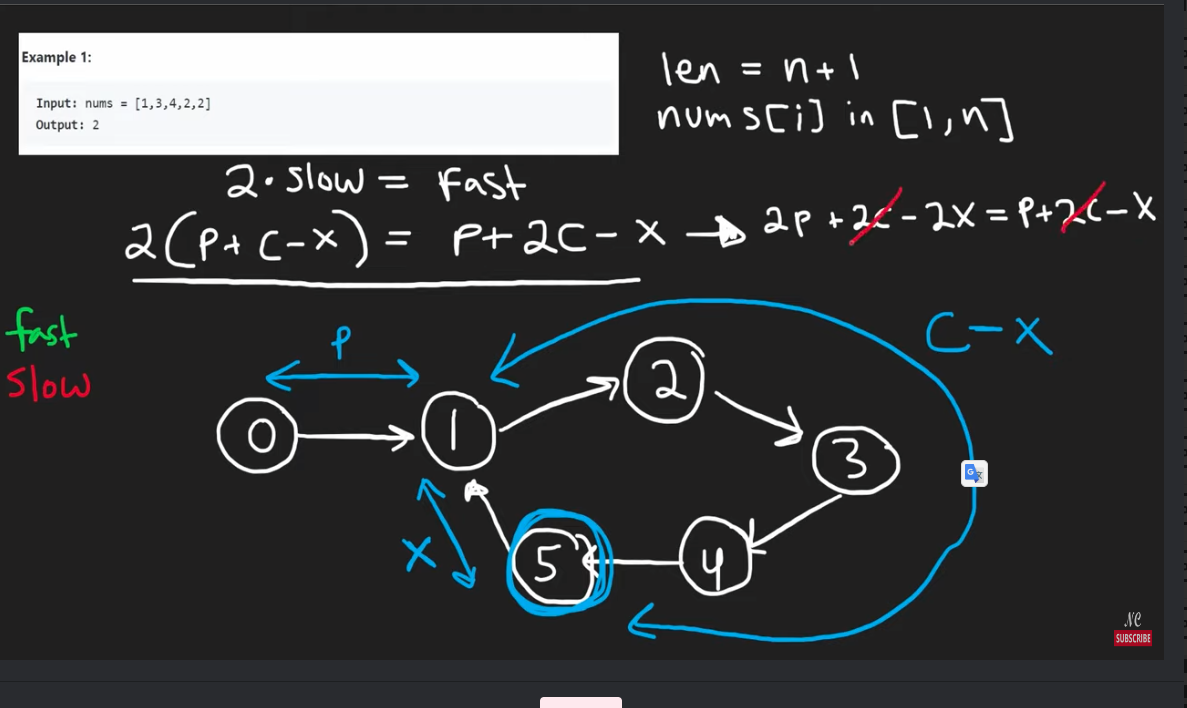 Example 1:
Input: nums = [1,3,4,2,2]
Output: 2
len = n+1
nums[i] in [1,n]
2·slow = fast
2(p+c-x) = p+2c-x → 2p+2c-2x=p+2c-x
fast
slow
p
c-x
0
1
2
3
4
5
x
NC
SUBSCRIBE